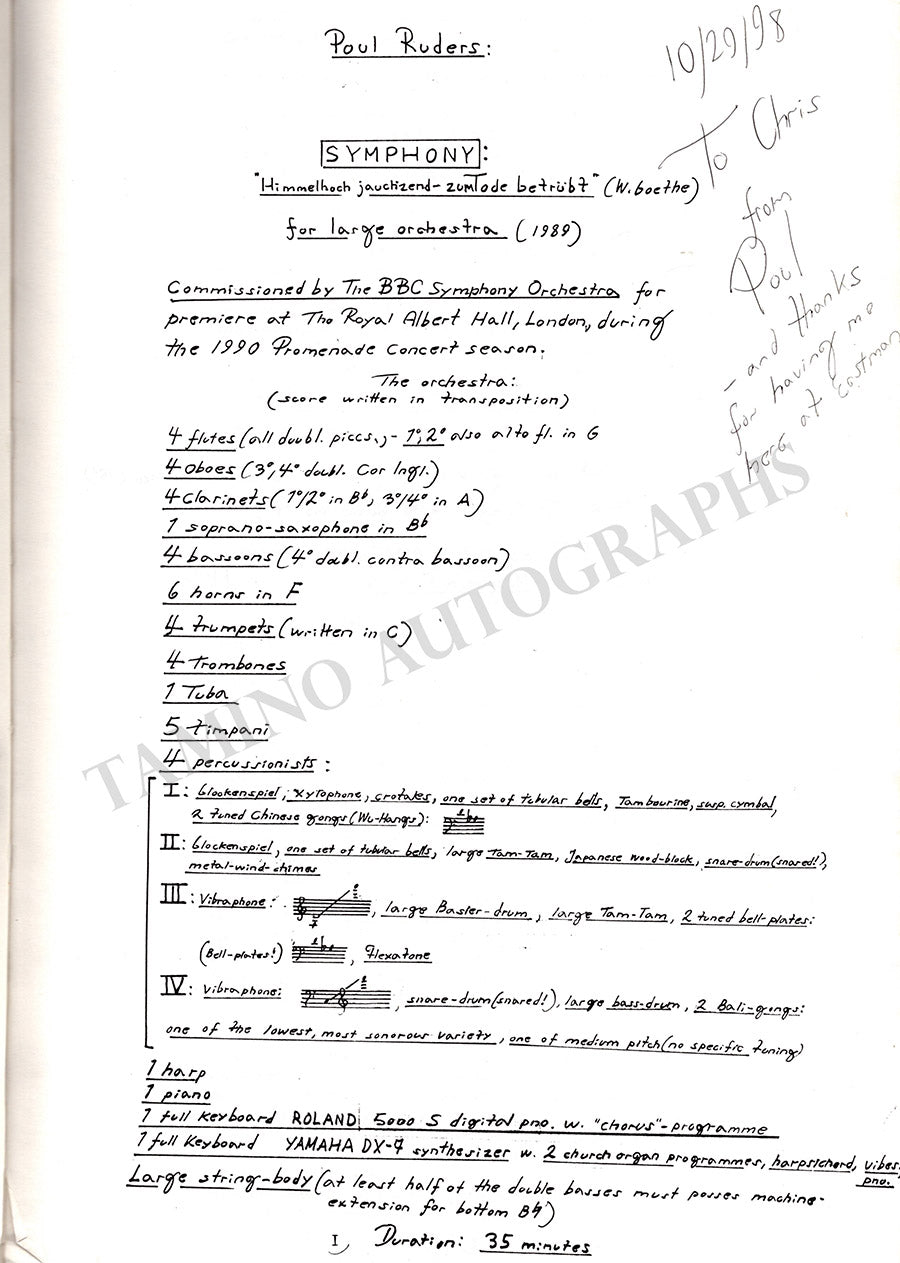 Poul Ruders:
10/29/98
To Chris
from
Poul
- and thanks
for having me
here at Eastman
SYMPHONY:
"Himmelhoch jauchzend- zumTode betrübt" (W.Goethe)
for large orchestra (1989)
Commissioned by The BBC Symphony Orchestra for
premiere at The Royal Albert Hall, London, during
the 1990 Promenade Concert season.
The orchestra:
(score written in transposition)
4 flutes (all doubl. piccs.,- 1°,2° also alto fl. in G
4 Oboes (3°,4° doubl. Cor Ingl.)
4 Clarinets (1°/2° in B♭, 3°/4° in A)
1 soprano-saxophone in B♭
4 bassoons (4° doubl. contra bassoon)
6 horns in F
4 trumpets (written in C)
4 Trombones
1 Tuba
5 timpani
4 percussionists:
I: Glockenspiel, Xylophone, crotales, one set of tubular bells, Tambourine, susp. cymbal,
2 tuned Chinese gongs (Wu-Hangs):
II: Glockenspiel, one set of tubular bells, large Tam-Tam, Japanese wood-block, snare-drum (snared!),
metal-wind-chimes
III: Vibraphone: , large Basler-drum, large Tam-Tam, 2 tuned bell-plates:
(Bell-plates!) , Flexatone
IV: Vibraphone: , snare-drum (snared!), large bass-drum, 2 Bali-gongs:
one of the lowest, most sonorous variety, one of medium pitch (no specific tuning)
1 harp
1 piano
1 full Keyboard ROLAND 5000 S digital pno. w. "chorus"-programme
1 full Keyboard YAMAHA DX-7 synthesizer w. 2 church organ programmes, harpsichord, vibes.
pno.
Large string-body (at least half of the double basses must posses machine-
extension for bottom B♮)
I, Duration: 35 minutes
TAMINO AUTOGRAPHS